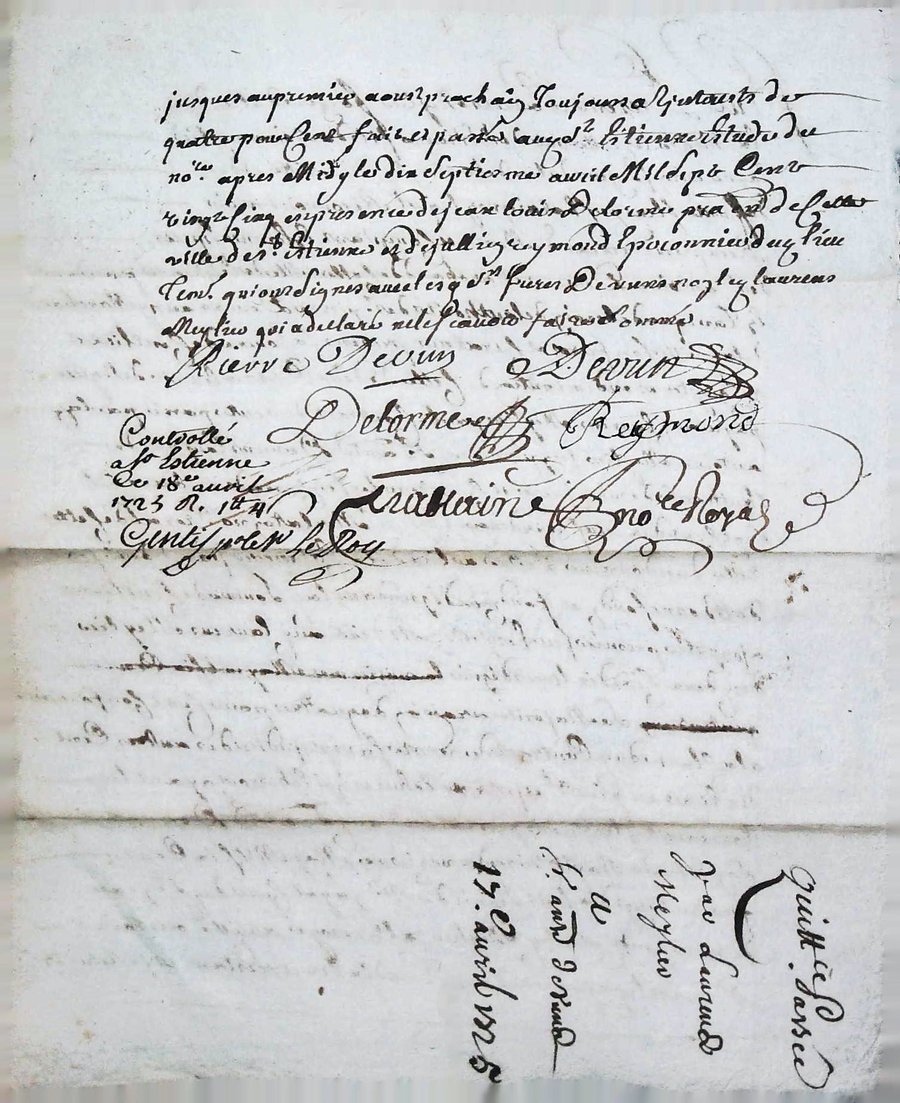 jusques au premier aoust prochain Toujours a linterests de
quatre pour Cent fait et passé audt St Estienne Estude du
nore apres Midy le dix Septiesme avril Mil Sept Cent
vingt Cinq en presence de Jean louis Delorme de Cette
ville de St Estienne et de reymond dud lieu
Tem. qui ont Signés avec lesd Srs freres Devun non led laurens
Meylieu qui a declaré ne le Scavoir faire
Pierre Devun Devun
Delorme Reymond
Controllé
a St Estienne
Le 18e avril
1725 R.
nore Royal
quittce passée
par Laurend
Meylieu
a
Sr and devund
17e avril 1725